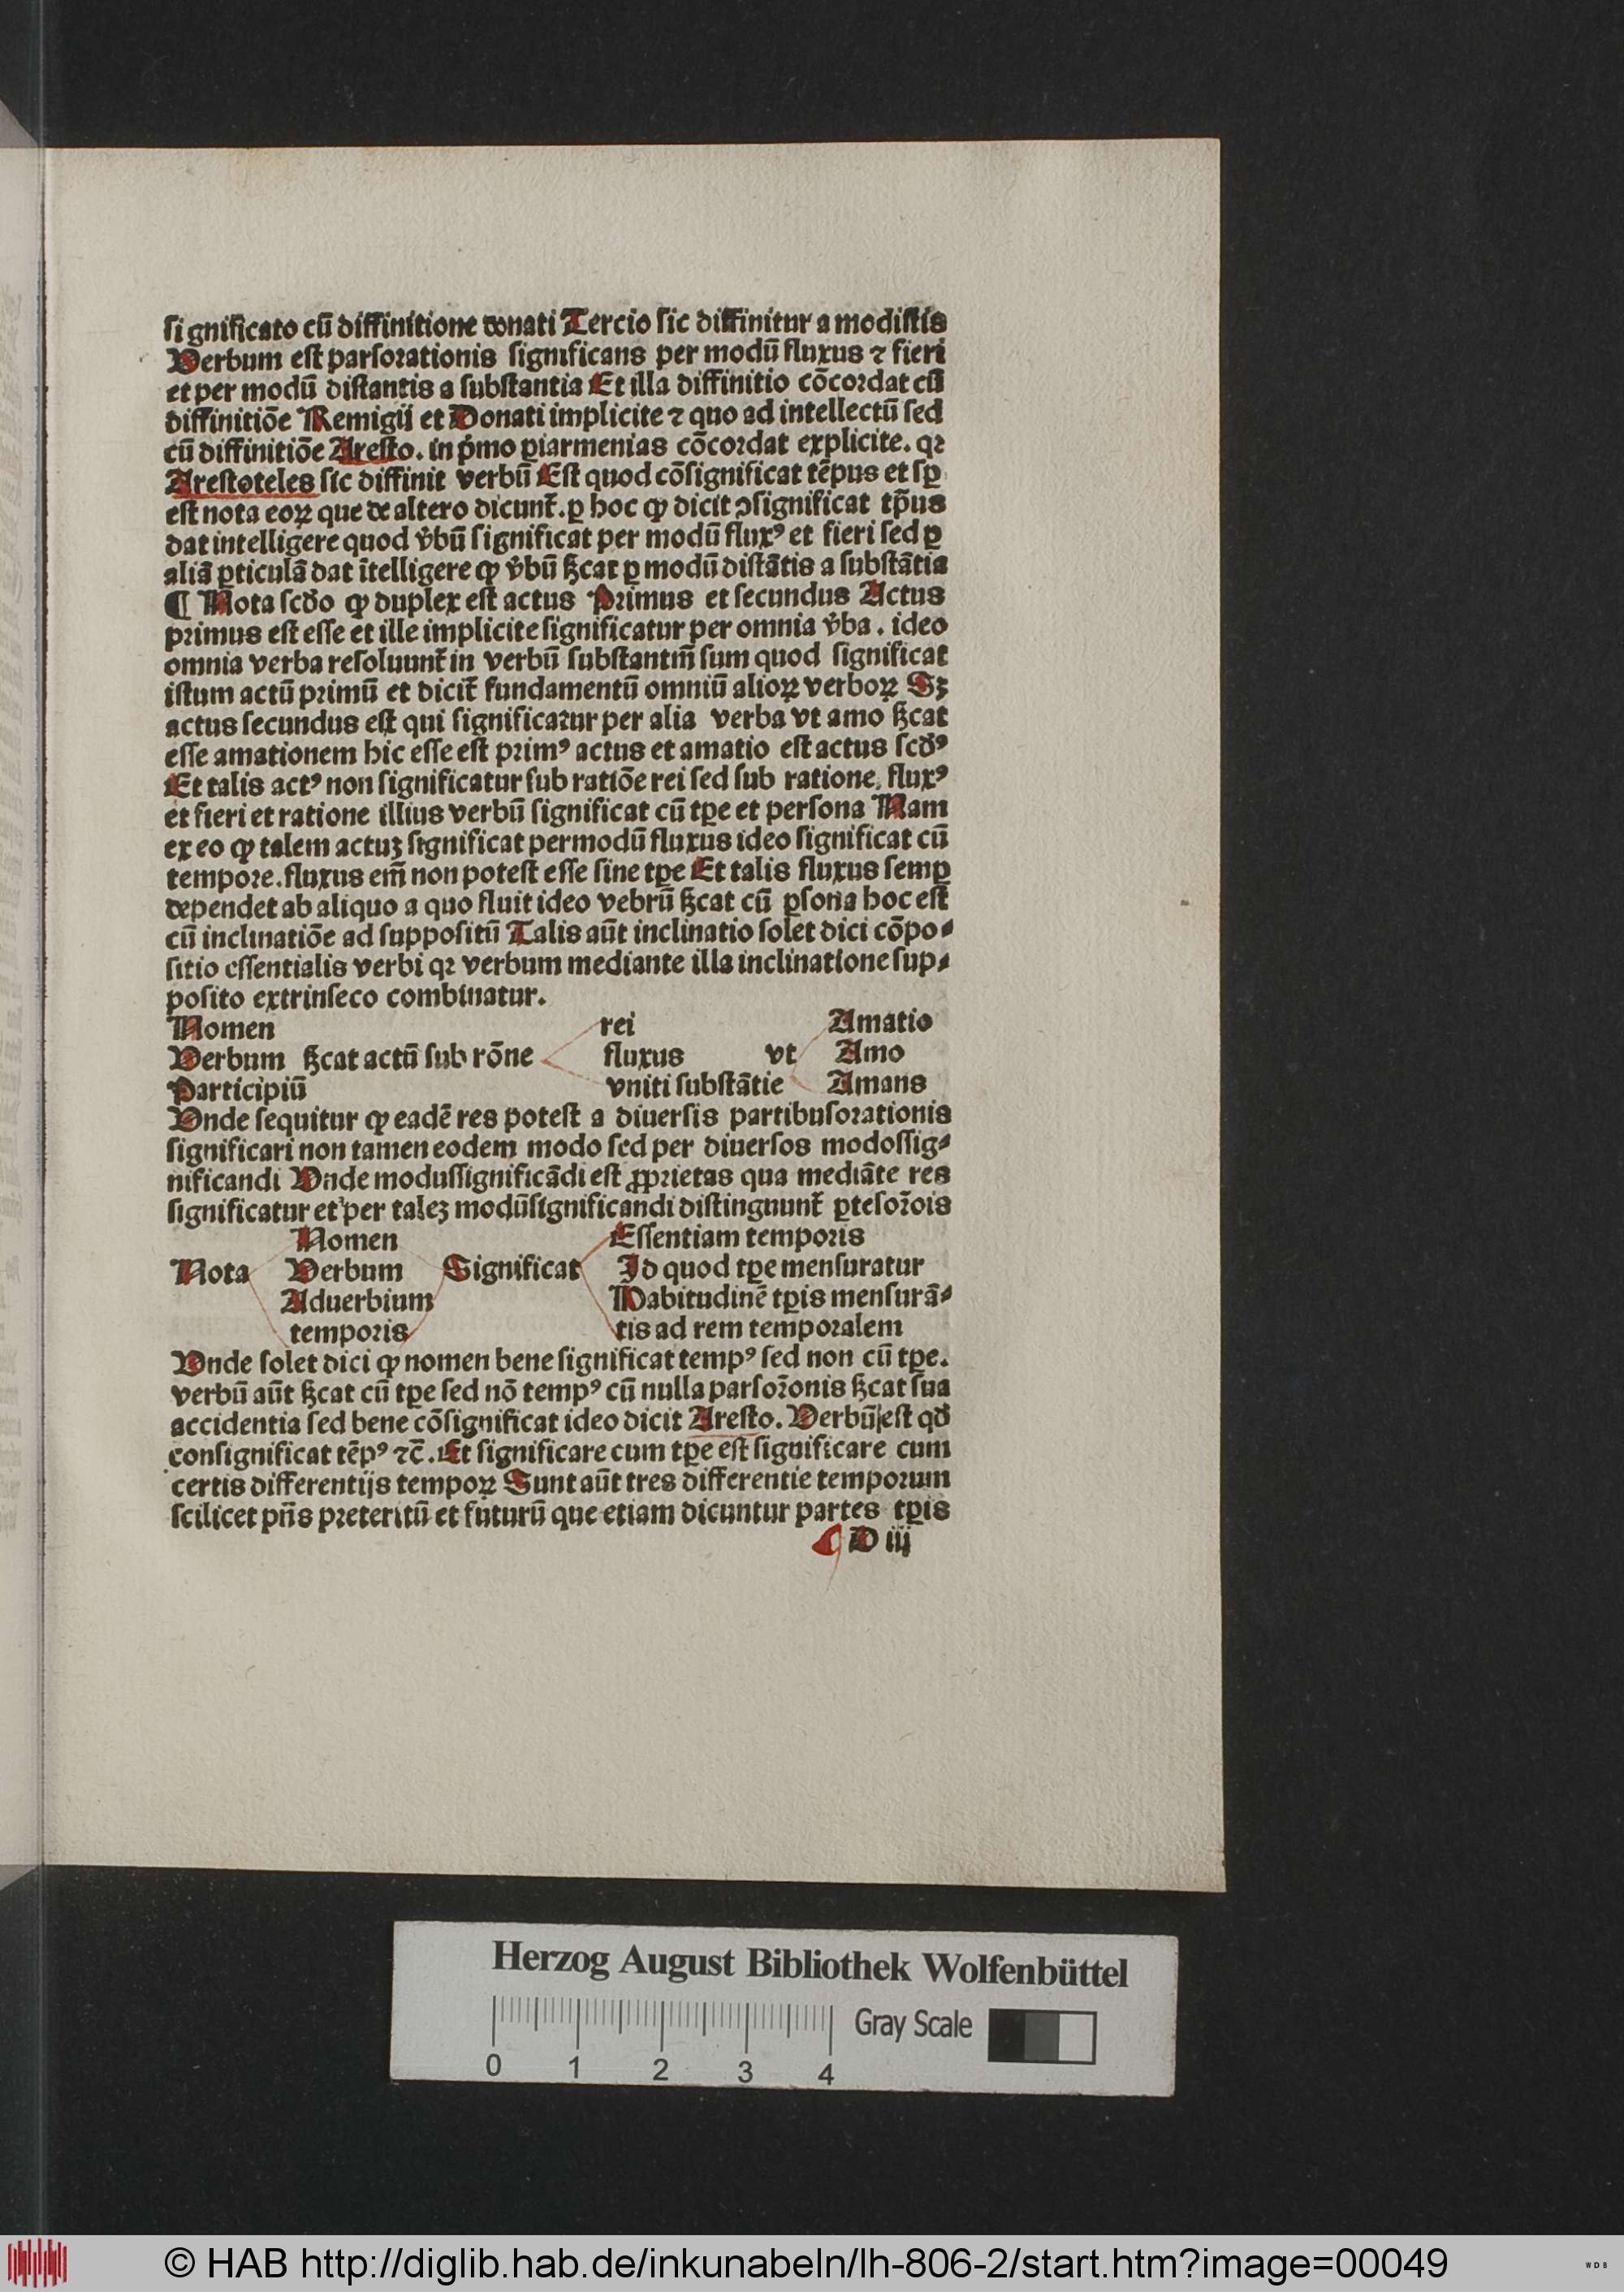 ſi gnificato cū diffinitione donati Tercio ſic diffinitur a modiſtis
Verbum eſt parſorationis ſignificans per modū fluxus ⁊ fieri
et per modū diſtantis a ſubſtantia Et illa diffinitio cōcordat cū
diffinitiōe Remigij et Donati implicite ⁊ quo ad intellectū ſed
cū diffinitiōe Areſto. in p̓mo ꝑiarmenias cōcordat explicite. qꝛ
Areſtoteles ſic diffinit verbū Eſt quod cōſignificat tēpus et ſꝑ
eſt nota eoꝝ que de altero dicunt̄. ꝑ hoc ꝙ dicit ↄſignificat tp̄us
dat intelligere quod v̓bū ſignificat per modū fluxꝰ et fieri ſed ꝑ
aliā ꝑticulā dat ītelligere ꝙ v̓bū ẜcat ꝑ modū diſtātis a ſubſtātia
¶ Nota ſcd̓o ꝙ duplex eſt actus Primus et ſecundus Actus
primus eſt eſſe et ille implicite ſignificatur per omnia v̓ba. ideo
omnia verba reſoluunt̄ in verbū ſubſtantiū ſum quod ſignificat
iſtum actū primū et dicit̄ fundamentū omniū alioꝝ verboꝝ Sꝫ
actus ſecundus eſt qui ſignificatur per alia verba vt amo ẜcat
eſſe amationem hic eſſe eſt primꝰ actus et amatio eſt actus ſcd̓ꝰ
Et talis actꝰ non ſignificatur ſub ratiōe rei ſed ſub ratione fluxꝰ
et fieri et ratione illius verbū ſignificat cū tꝑe et perſona Nam
ex eo ꝙ talem actuꝫ ſignificat permodū fluxus ideo ſignificat cū
tempore. fluxus em̄ non poteſt eſſe ſine tꝑe Et talis fluxus ſemꝑ
dependet ab aliquo a quo fluit ideo vebrū ẜcat cū ꝑſona hoc eſt
cū inclinatiōe ad ſuppoſitū Talis aūt inclinatio ſolet dici cōpo⸗
ſitio eſſentialis verbi qꝛ verbum mediante illa inclinatione ſup⸗
poſito extrinſeco combinatur.
Nomen rei Amatio
Verbum ẜcat actū ſub rōne fluxus vt Amo
Participiū vniti ſubſtātie Amans
Vnde ſequitur ꝙ eadē res poteſt a diuerſis partibuſorationis
ſignificari non tamen eodem modo ſed per diuerſos modoſſig⸗
nificandi Vnde moduſſignificādi eſt ꝓprietas qua mediāte res
ſignificatur et per taleꝫ modūſignificandi diſtingnunt̄ ꝑteſor̄ois
Nomen Eſſentiam temporis
Nota Verbum Significat Id quod tꝑe menſuratur
Aduerbium Habitudinē tꝑis menſurā⸗
temporis tis ad rem temporalem
Vnde ſolet dici ꝙ nomen bene ſignificat tempꝰ ſed non cū tꝑe.
verbū aūt ẜcat cū tꝑe ſed nō tempꝰ cū nulla parſor̄onis ẜcat ſua
accidentia ſed bene cōſignificat ideo dicit Areſto. Verbū eſt qd̓
conſignificat tēpꝰ ⁊c̄. Et ſignificare cum tꝑe eſt ſignificare cum
certis differentijs tempoꝝ Sunt aūt tres differentie temporum
ſcilicet pn̄s preteritū et futurū que etiam dicuntur partes tꝑis
D iij
Herzog August Bibliothek Wolfenbüttel
Gray Scale
0 1 2 3 4
© HAB http://diglib.hab.de/inkunabeln/lh-806-2/start.htm?image=00049
WDB